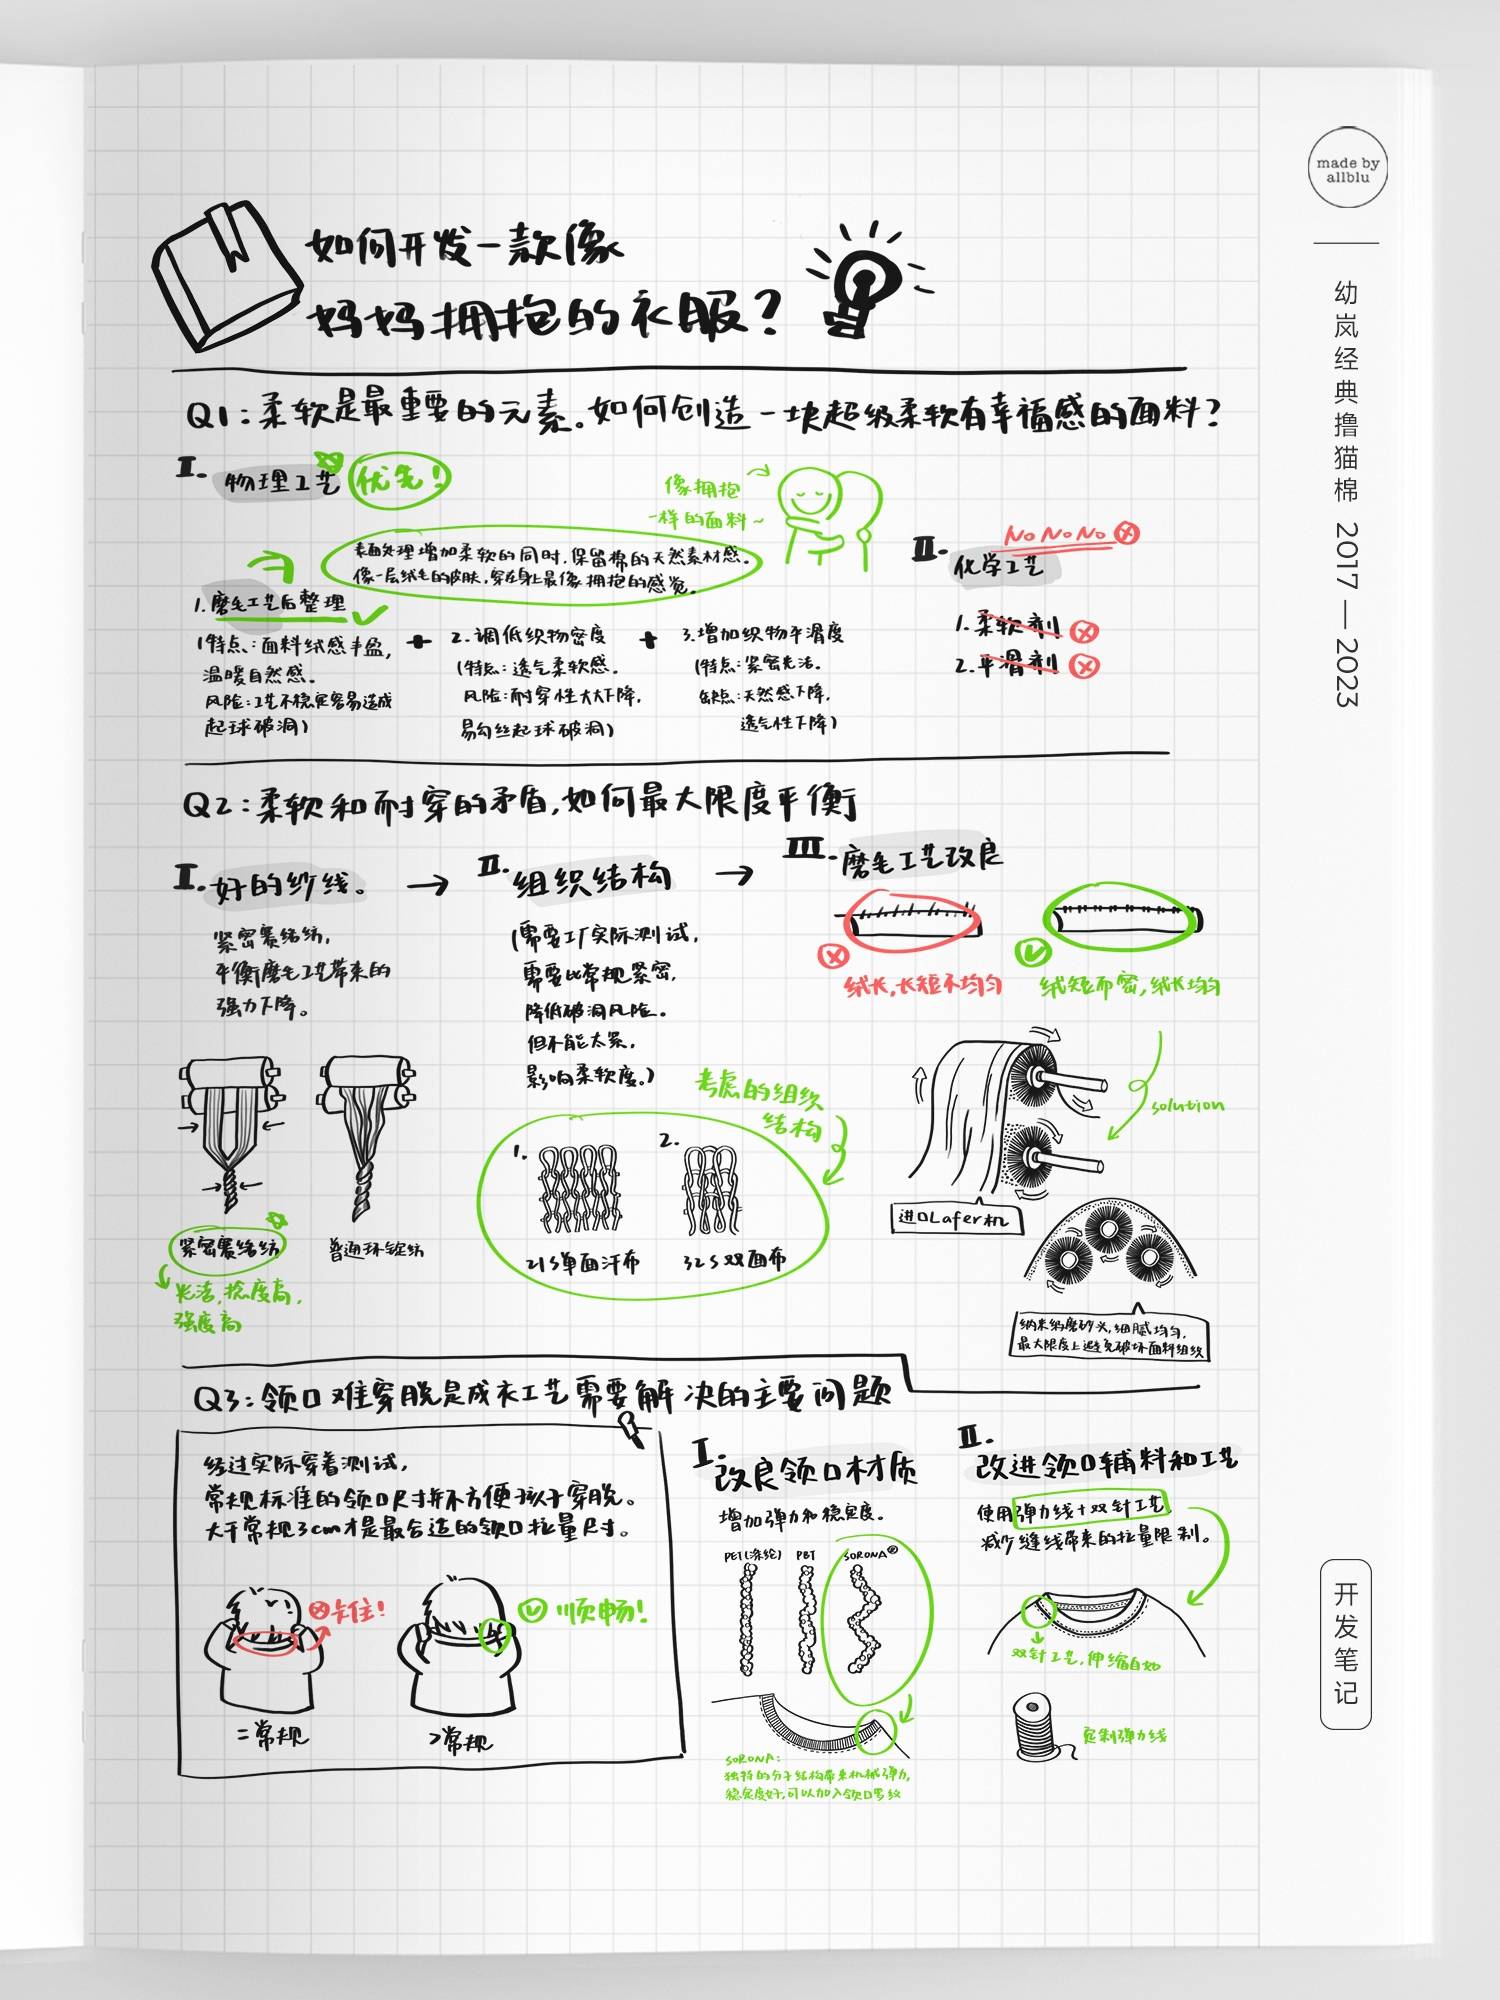 made by
allblu
幼岚经典撸猫棉 2017—2023
开发笔记
如何开发一款像
妈妈拥抱的衣服?
Q1:柔软是最重要的元素。如何创造一块超级柔软有幸福感的面料?
I. 物理工艺 优先!
像拥抱
一样的面料~
表面处理增加柔软的同时,保留棉的天然素材感。
像一层绒毛的皮肤,穿在身上最像拥抱的感觉。
1.磨毛工艺后整理
(特点:面料绒感丰盈,
温暖自然感。
风险:工艺不稳定容易造成
起球破洞)
+
2.调低织物密度
(特点:透气柔软感。
风险:耐穿性大大下降,
易勾丝起球破洞)
+
3.增加织物平滑度
(特点:紧密光洁。
缺点:天然感下降,
透气性下降)
II. 化学工艺
No No No
1.柔软剂
2.平滑剂
Q2:柔软和耐穿的矛盾,如何最大限度平衡
I. 好的纱线。
紧密裹络纺,
平衡磨毛工艺带来的
强力下降。
紧密裹络纺
普通环锭纺
光洁,捻度高,
强度高
II. 组织结构
(需要工厂实际测试,
需要比常规紧密,
降低破洞风险。
但不能太紧,
影响柔软度。)
考虑的组织
结构
1.
2.
21S单面汗布
32S双面布
III. 磨毛工艺改良
绒长,长短不均匀
绒短而密,绒长均匀
solution
进口Lafer机
纳米级磨砂头,细腻均匀,
最大限度上避免破坏面料组织
Q3:领口难穿脱是成衣工艺需要解决的主要问题
经过实际穿着测试,
常规标准的领口尺寸并不方便孩子穿脱。
大于常规3cm才是最合适的领口拉量尺寸。
卡住!
顺畅!
=常规
>常规
I. 改良领口材质
增加弹力和稳定度。
PET(涤纶)
PBT
SORONA®
SORONA:
独特的分子结构带来机械弹力,
稳定度好,可以加入领口罗纹
II. 改进领口辅料和工艺
使用弹力线+双针工艺,
减少缝线带来的拉量限制。
双针工艺,伸缩自如
定制弹力线